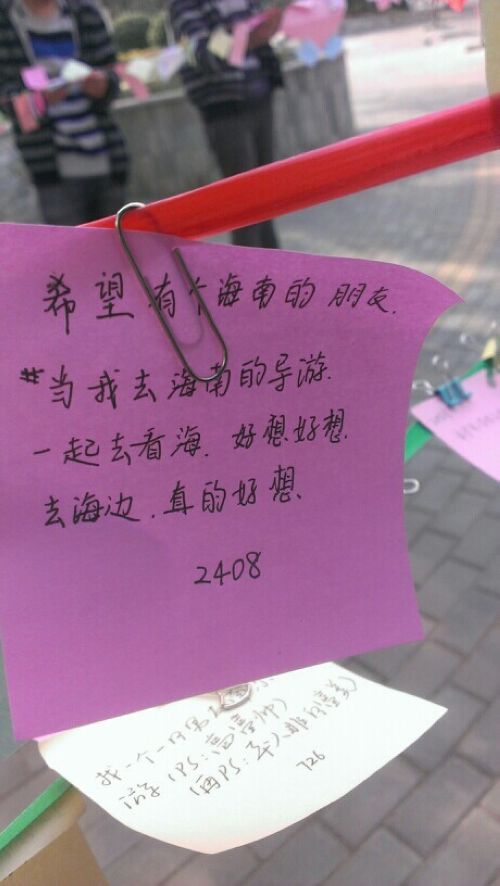 希望有个海南的朋友.
#当我去海南的导游.
一起去看海.好想好想.
去海边.真的好想、
2408
找一个一日男
(PS:高富帅)
(再PS:本人非白富美)
726